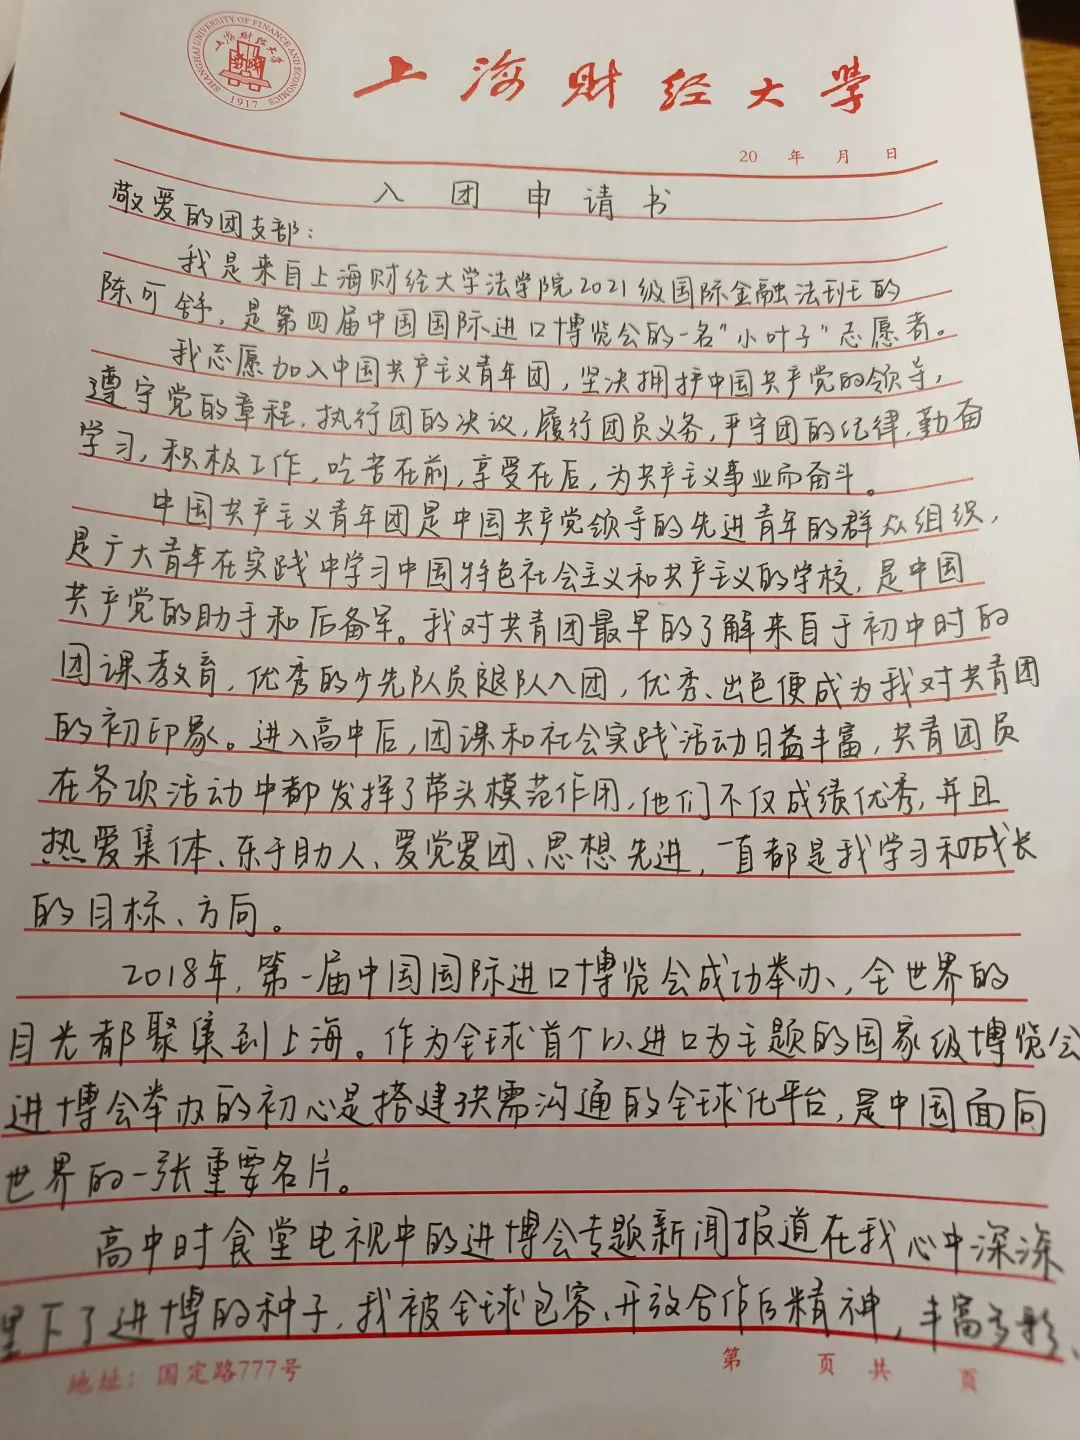 SHANGHAI UNIVERSITY OF FINANCE AND ECONOMICS
上海财经大学
1917
上海财经大学
20 年 月 日
入团申请书
敬爱的团支部：
我是来自上海财经大学法学院2021级国际金融法班的
陈可舒，是第四届中国国际进口博览会的一名“小叶子”志愿者。
我志愿加入中国共产主义青年团，坚决拥护中国共产党的领导，
遵守党的章程，执行团的决议，履行团员义务，严守团的纪律，勤奋
学习，积极工作，吃苦在前，享受在后，为共产主义事业而奋斗。
中国共产主义青年团是中国共产党领导的先进青年的群众组织，
是广大青年在实践中学习中国特色社会主义和共产主义的学校，是中国
共产党的助手和后备军。我对共青团最早的了解来自于初中时的
团课教育，优秀的少先队员退队入团，优秀、出色便成为我对共青团
的初印象。进入高中后，团课和社会实践活动日益丰富，共青团员
在各项活动中都发挥了带头模范作用，他们不仅成绩优秀，并且
热爱集体、乐于助人、爱党爱团、思想先进，一直都是我学习和成长
的目标、方向。
2018年，第一届中国国际进口博览会成功举办，全世界的
目光都聚集到上海。作为全球首个以进口为主题的国家级博览会
进博会举办的初心是搭建供需沟通的全球化平台，是中国面向
世界的一张重要名片。
高中时食堂电视中的进博会专题新闻报道在我心中深深
埋下了进博的种子，我被全球包容、开放合作的精神，丰富多彩、
地址：国定路777号
第 页 共 页